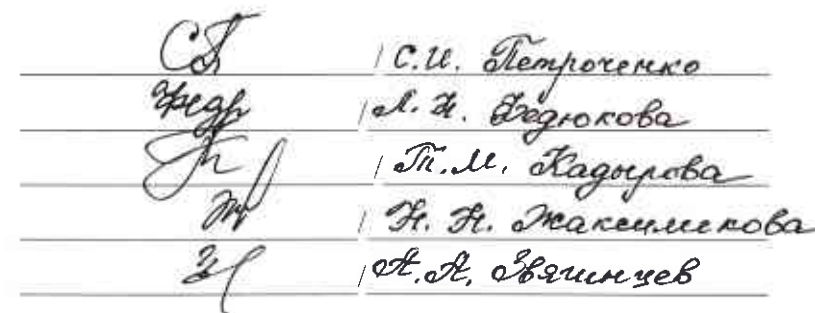 СП / С.И. Петроченко
Федр / Л.Н. Федюкова
/ Т.М. Кадырова
/ Н.Н. Жаксиликова
/ А.А. Звягинцев